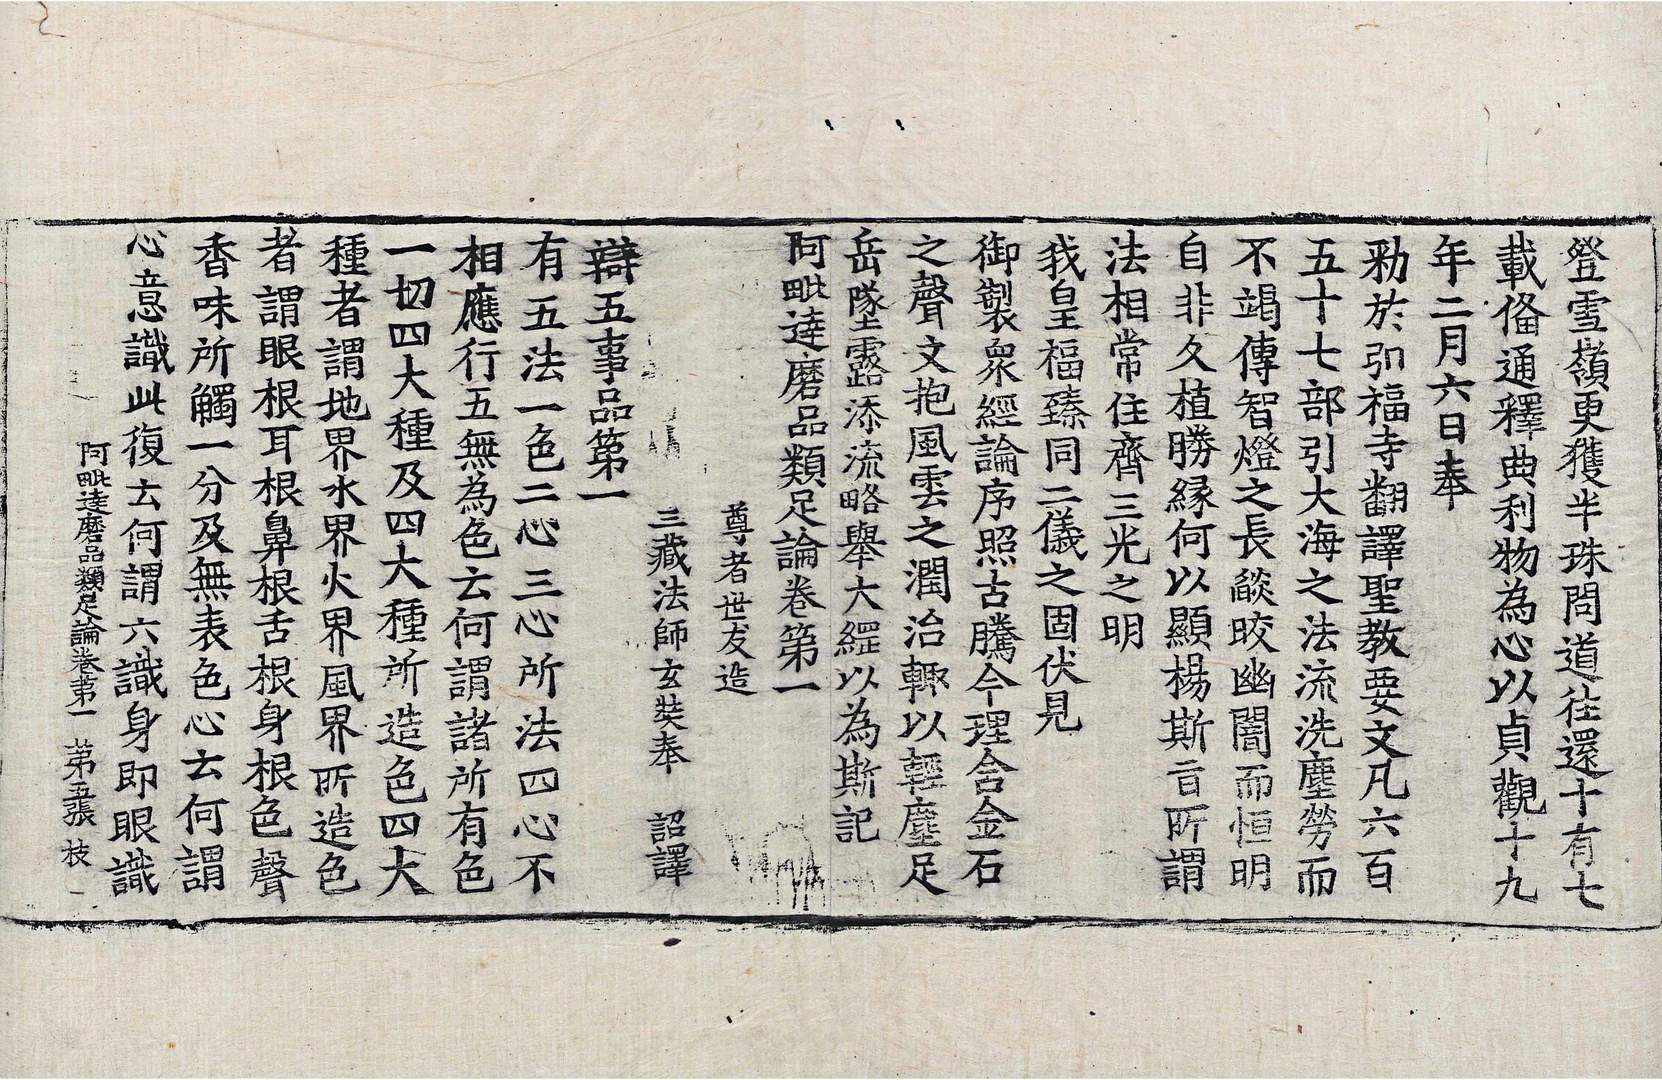 登雪嶺更獲半珠問道往還十有七
載俻通釋典利物為心以貞觀十九
年二月六日奉
勑於弘福寺翻譯聖教要文凡六百
五十七部引大海之法流洗塵勞而
不竭傳智燈之長燄皎幽闇而恒明
自非久植勝縁何以顯楊斯旨所謂
法相常住齊三光之明
我皇福臻同二儀之固伏見
御製衆經論序照古騰今理含金石
之聲文抱風雲之潤治輙以輕塵足
岳墜露添流略舉大繹以為斯記
阿毗達磨品類足論卷第一
尊者世友造
三藏法師玄奘奉　詔譯
辯五事品第一
有五法一色二心三心所法四心不
相應行五無為色云何謂諸所有色
一切四大種及四大種所造色四大
種者謂地界水界火界風界所造色
者謂眼根耳根鼻根舌根身根色聲
香味所觸一分及無表色心云何謂
心意識此復云何謂六識身即眼識
阿毗達磨品類足論卷第一　第五張　枝　一